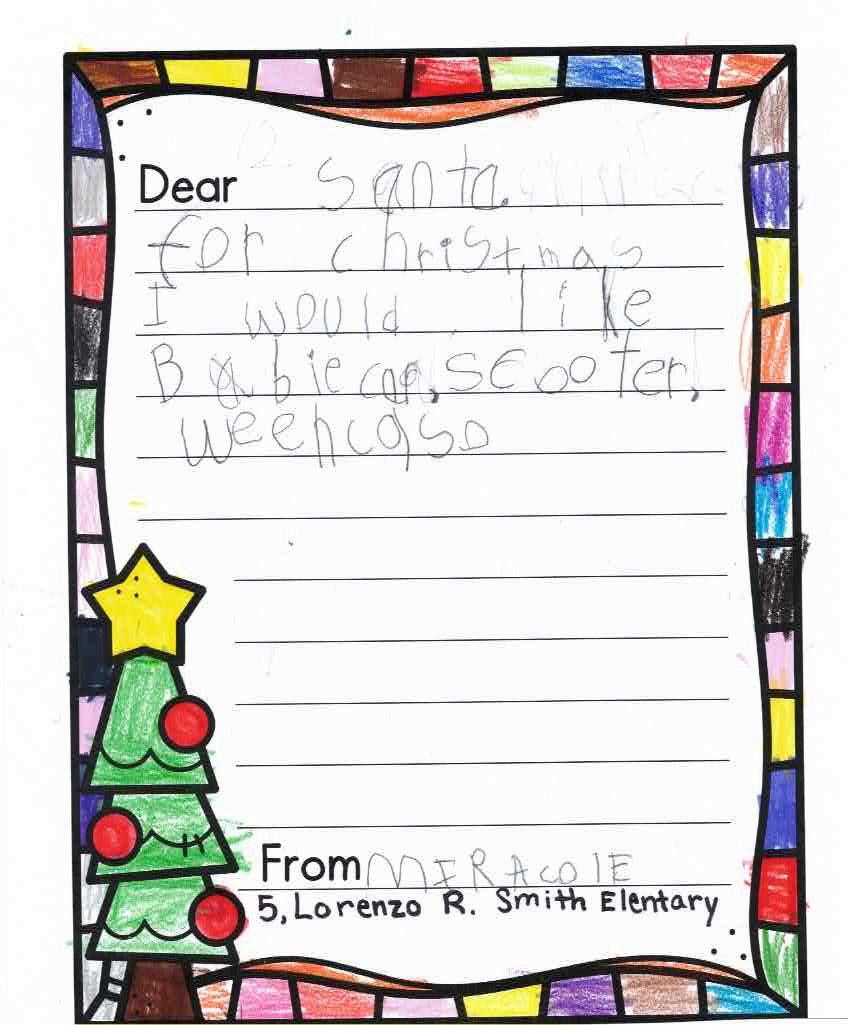 Dear Santa.
for christmas
I would like
Babie car, scooter,
weencaso
From MIRAcOlE
5, Lorenzo R. Smith Elentary